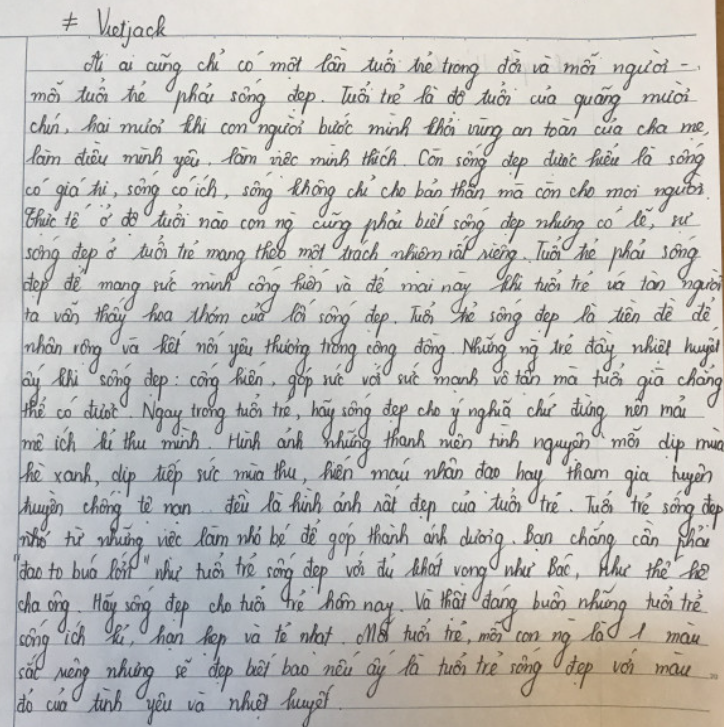 # Vietjack
Ai ai cũng chỉ có một lần tuổi trẻ trong đời và mỗi người -
mỗi tuổi trẻ phải sống đẹp. Tuổi trẻ là độ tuổi của quãng mười
chín, hai mươi khi con người bước mình khỏi vùng an toàn của cha mẹ,
làm điều mình yêu, làm việc mình thích. Còn sống đẹp được hiểu là sống
có giá trị, sống có ích, sống không chỉ cho bản thân mà còn cho mọi người.
Thực tế ở độ tuổi nào con ng cũng phải biết sống đẹp nhưng có lẽ, sự
sống đẹp ở tuổi trẻ mang theo một trách nhiệm rất riêng. Tuổi trẻ phải sống
đẹp để mang sức mình cống hiến và để mai này khi tuổi trẻ úa tàn người
ta vẫn thấy hoa thơm của lối sống đẹp. Tuổi trẻ sống đẹp là tiền đề để
nhân rộng và kết nối yêu thương trong cộng đồng. Những ng trẻ đầy nhiệt huyết
ấy khi sống đẹp: cống hiến, góp sức với sức mạnh vô tận mà tuổi già chẳng
thể có được. Ngay trong tuổi trẻ, hãy sống đẹp cho ý nghĩa chứ đừng nên mải
mê ích kỉ thu mình. Hình ảnh những thanh niên tình nguyện mỗi dịp mùa
hè xanh, dịp tiếp sức mùa thu, hiến máu nhân đạo hay tham gia tuyên
truyền chống tệ nạn... đều là hình ảnh rất đẹp của tuổi trẻ. Tuổi trẻ sống đẹp
nhớ từ những việc làm nhỏ bé để góp thành ánh dương. Bạn chẳng cần phải
"đao to búa lớn" như tuổi trẻ sống đẹp với đủ khát vọng như Bác, như thế hệ
cha ông. Hãy sống đẹp cho tuổi trẻ hôm nay. Và thật đáng buồn những tuổi trẻ
sống ích kỉ, hạn hẹp và tẻ nhạt. Mỗi tuổi trẻ, mỗi con ng là 1 màu
sắc riêng nhưng sẽ đẹp biết bao nếu ấy là tuổi trẻ sống đẹp với màu
đỏ của tình yêu và nhiệt huyết.